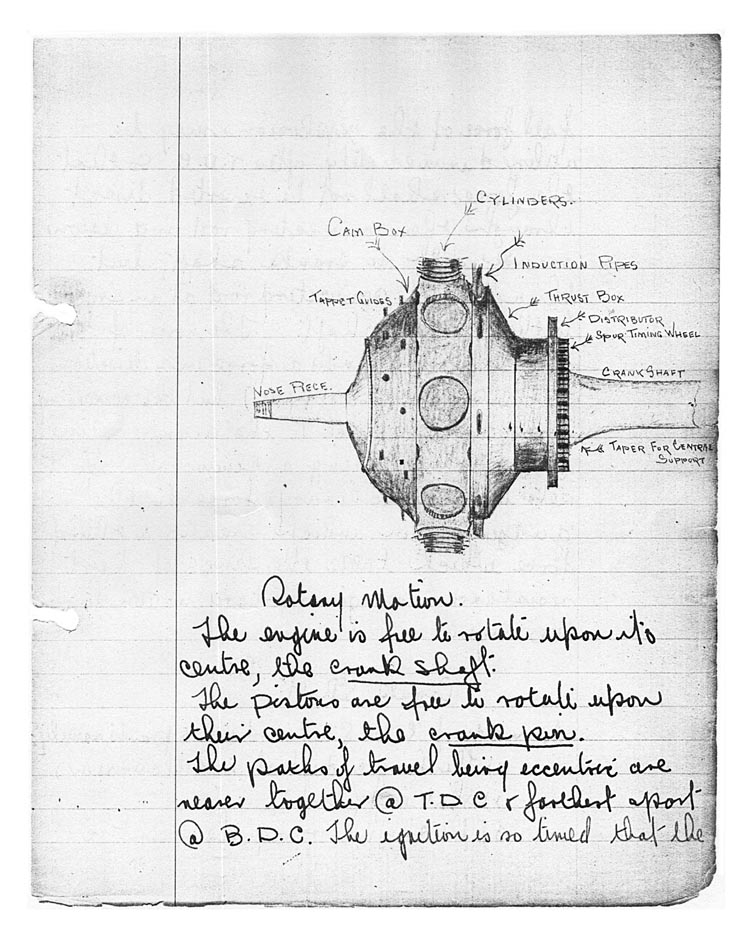 CYLINDERS.
CAM BOX
INDUCTION PIPES
TAPPET GUIDES
THRUST BOX
DISTRIBUTOR
SPUR TIMING WHEEL
CRANK SHAFT
NOSE PIECE.
TAPER FOR CENTRAL
SUPPORT
Rotary Motion.
The engine is free to rotate upon its
centre, the crank shaft.
The pistons are free to rotate upon
their centre, the crank pin.
The paths of travel being eccentric are
nearer together @ T.D.C & farthest apart
@ B.D.C. The ignition is so timed that the